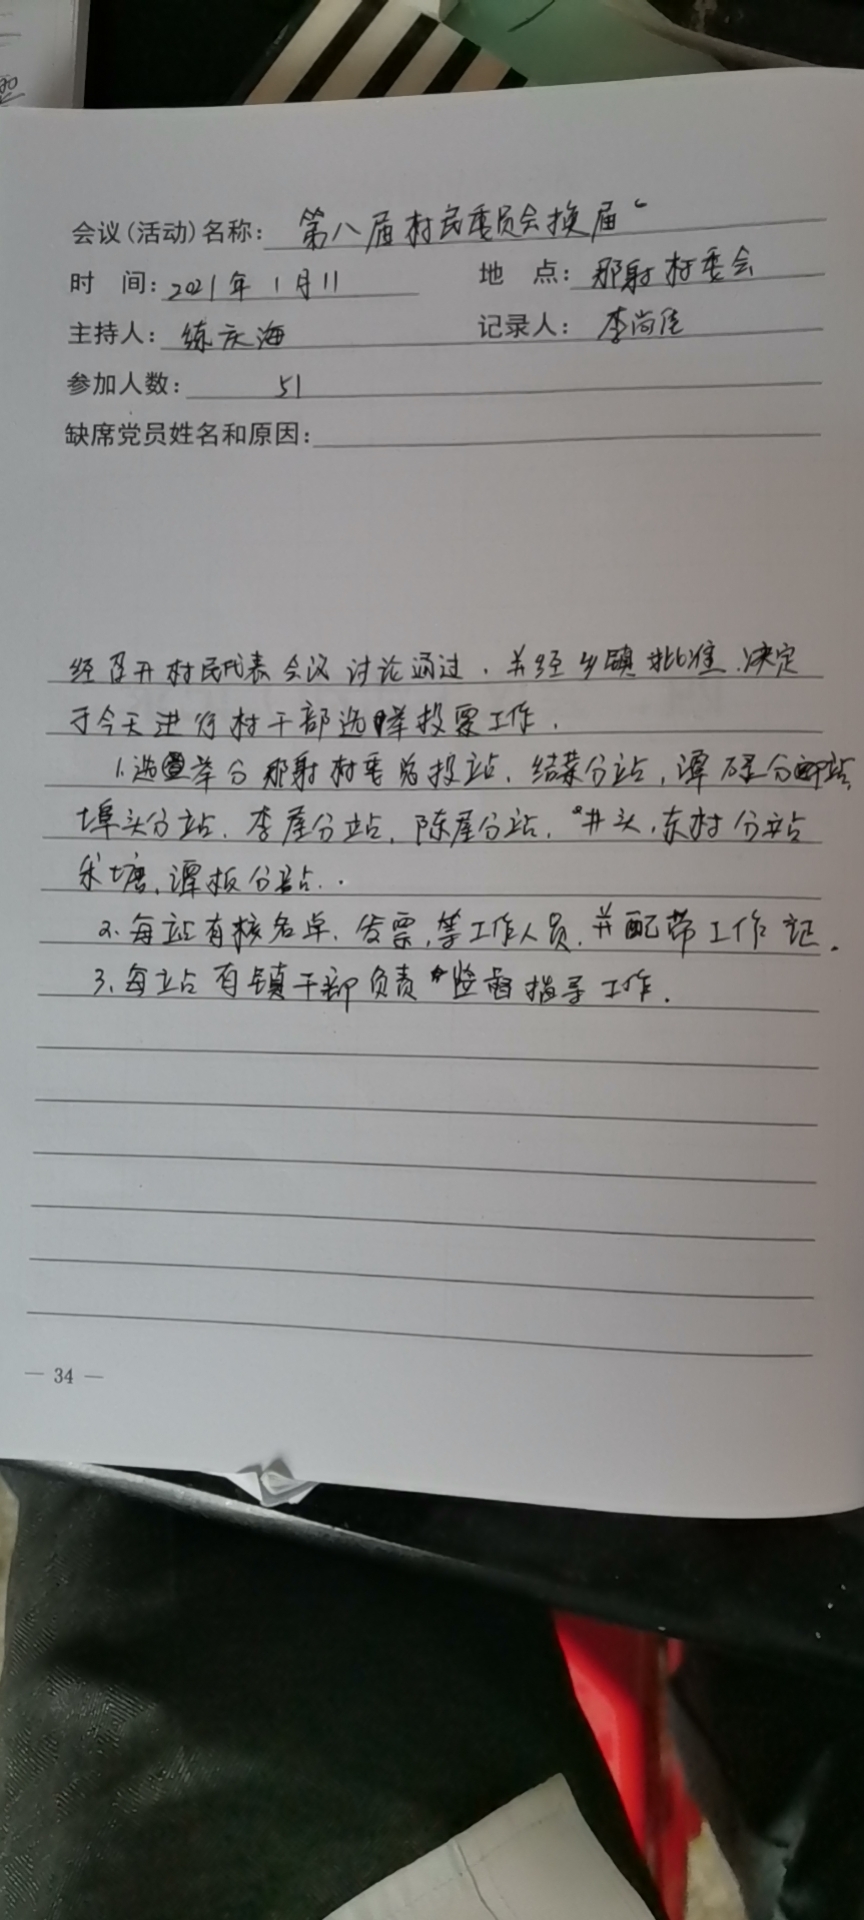 会议(活动)名称: 第八届村民委员会换届
时 间: 2021年1月11 地 点: 那射村委会
主持人: 练庆海 记录人: 李尚佳
参加人数: 51
缺席党员姓名和原因:
经召开村民代表会议讨论通过.并经乡镇批准.决定
于今天进行村干部选举投票工作.
1.选举分那射村委总投站.结菜分站,潭碌分站
埠头分站.李屋分站.陈屋分站.井头,东村分站
塘,潭板分站..
2.每站有核名单.发票,等工作人员.并配带工作记.
3.每站有镇干部负责监督指导工作.
— 34 —